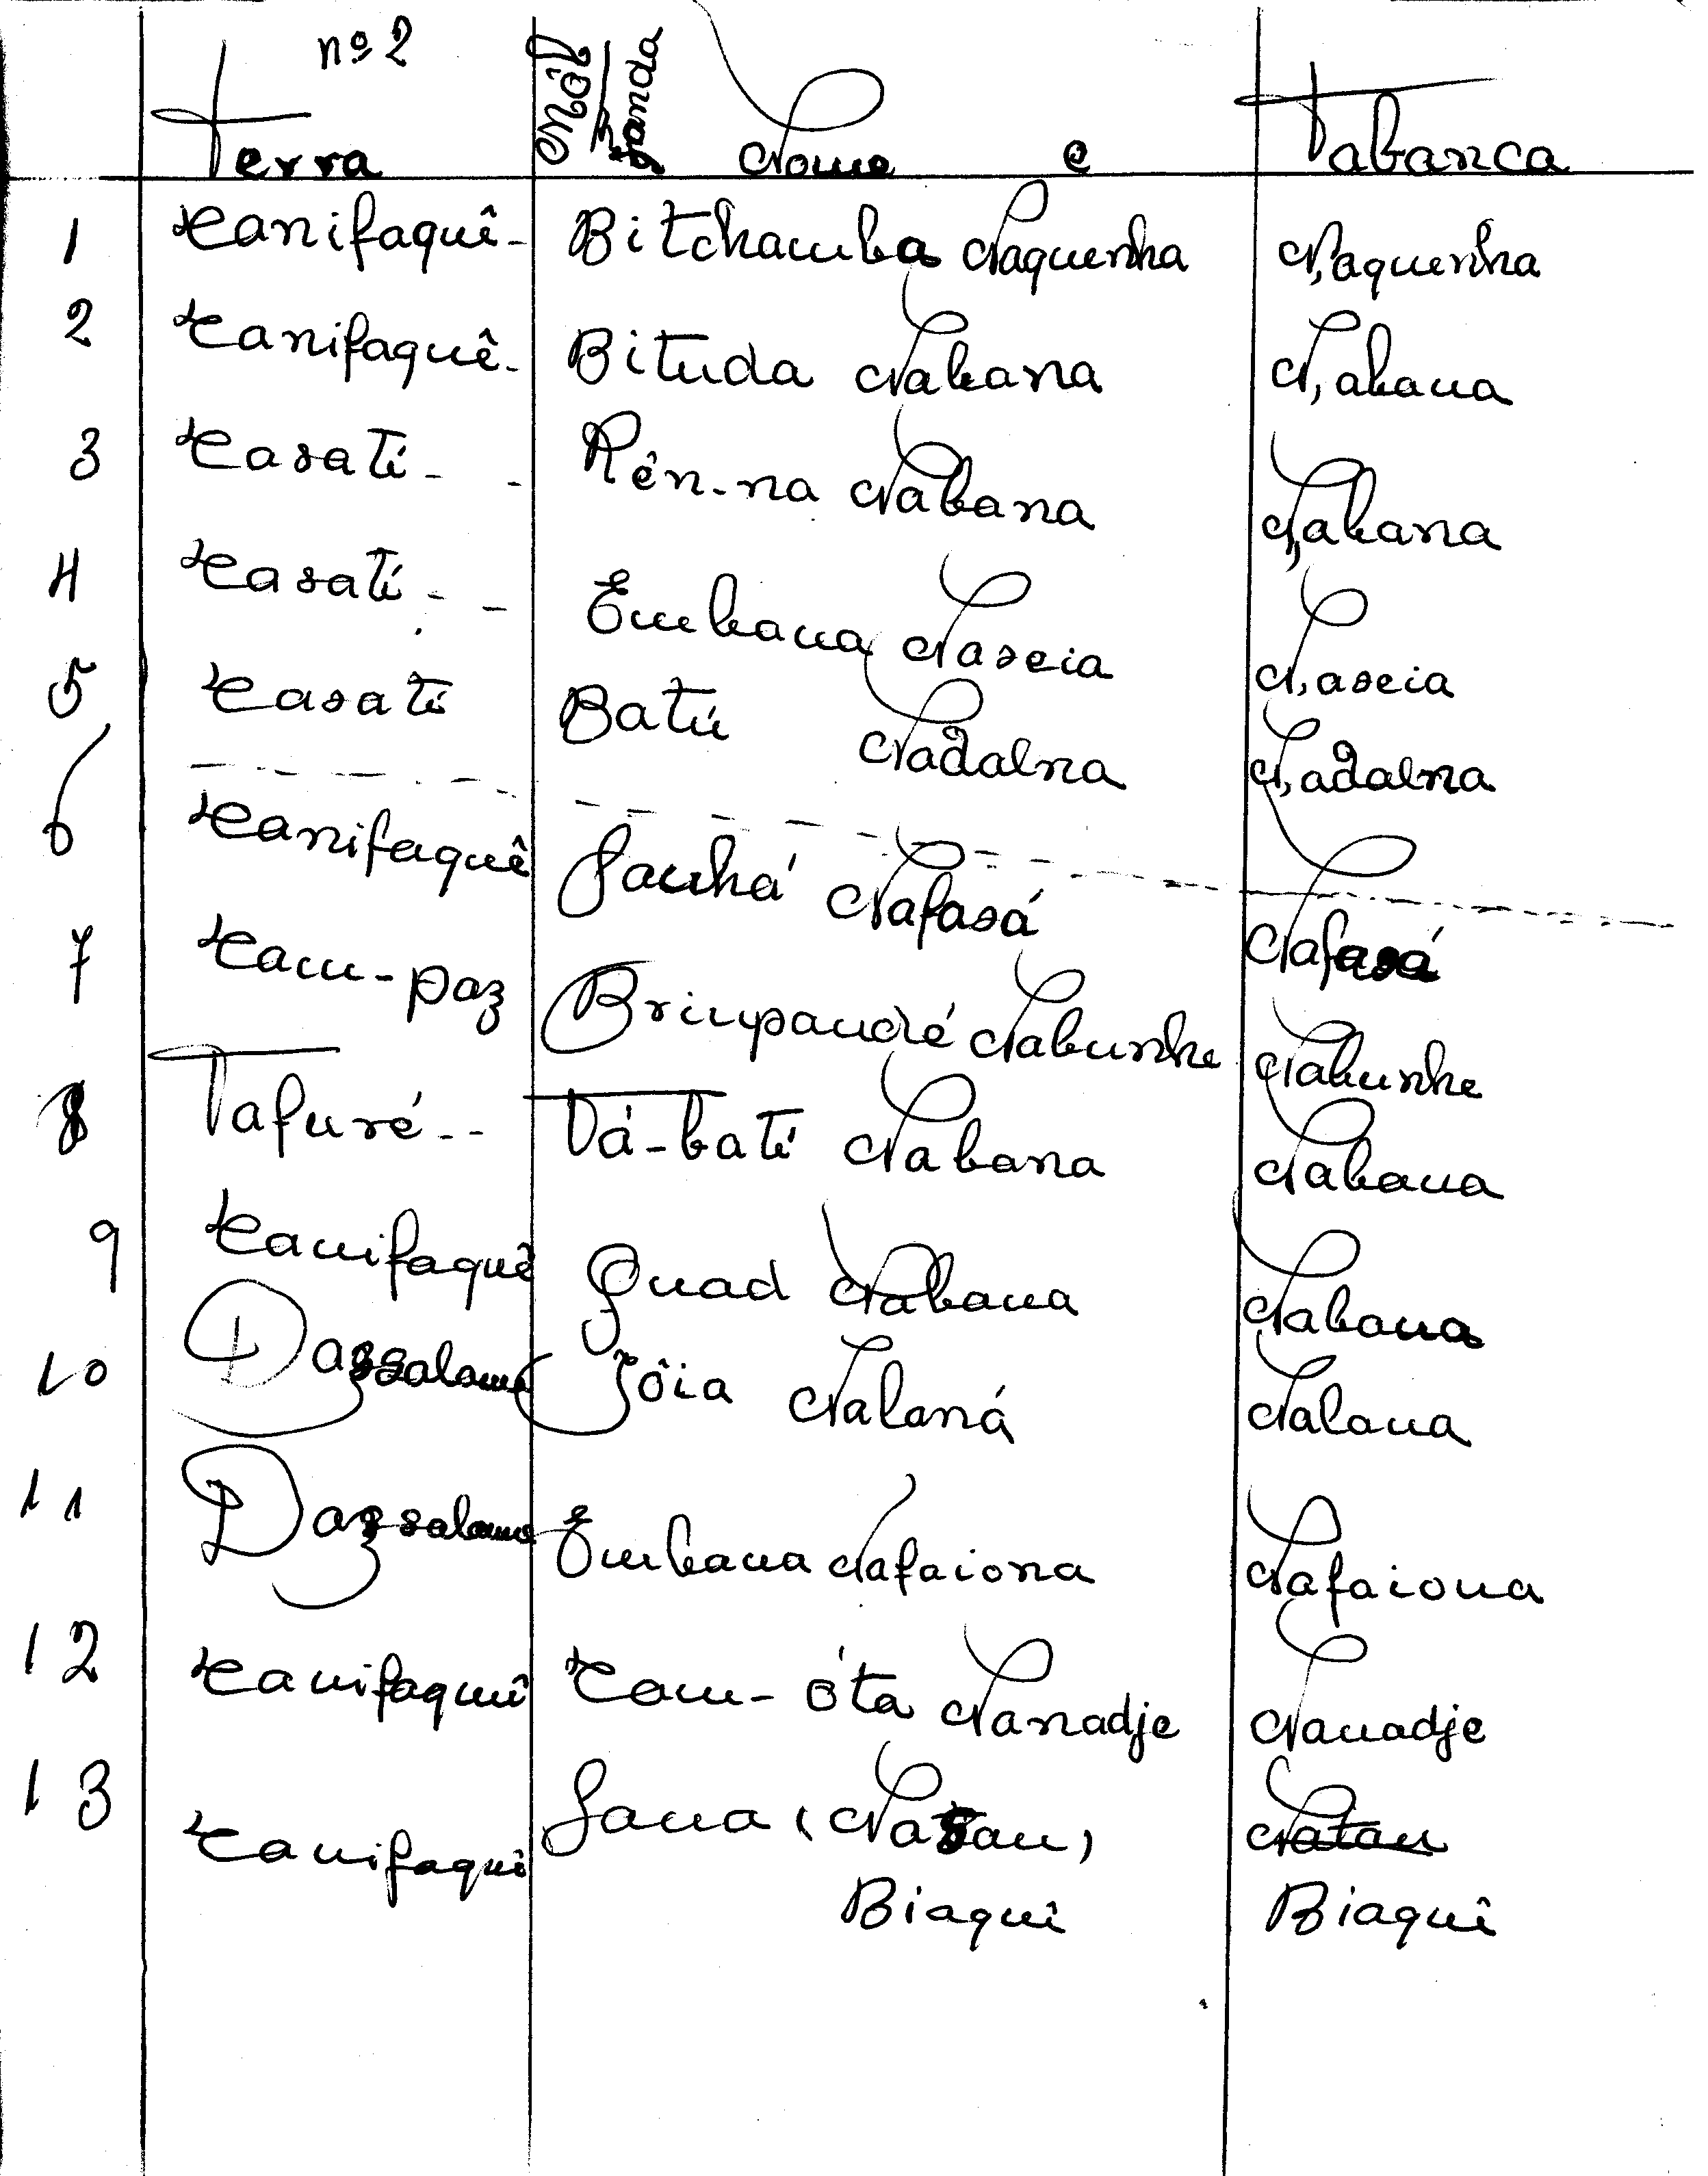 nº 2
Terra Nome e Tabanca
1 Canifaquê - Bitchamba Naquenha N,aquenha
2 Canifaquê - Bituda Nabana N,abana
3 Casatí - - Rên-na Nabana N,abana
4 Casatí - - Embana Nascia N,ascia
5 Casatí Batú Nadalna N,adalna
6 Canifaquê Sanhá Nafasá Nafasá
7 Cam-paz Brinpandé Nabunhe Nabunhe
8 Tafuré -- Tá-batí Nabana Nabana
9 Canifaquê Quad Nabana Nabana
10 Dazsalame Jôia Nalaná Nalana
11 Dazsalame Embana Nafaiona Nafaiona
12 Canifaquê Com-óta Nanadje Nanadje
13 Canifaquê Sana (Natan) Natan
Biaquê Biaquê